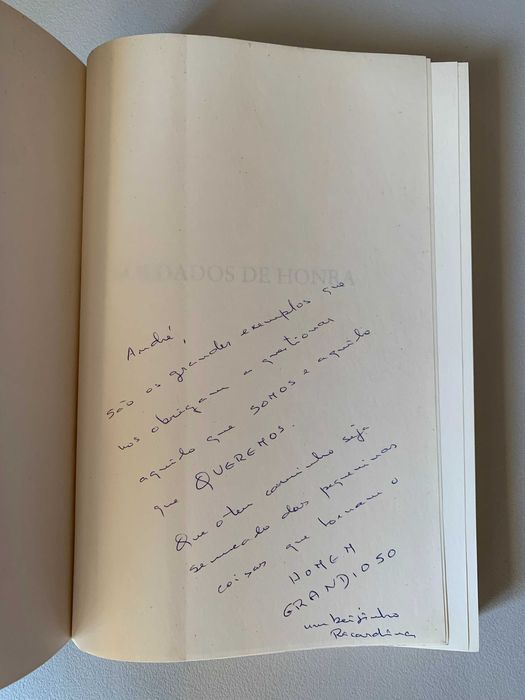 SOLDADOS DE HONRA
André,
são os grandes exemplos que
nos obrigam a questionar
aquilo que SOMOS e aquilo
que QUEREMOS.
Que o teu caminho seja
semeado das pequeninas
coisas que tornam o
HOMEM
GRANDIOSO
um beijinho
Ricardina